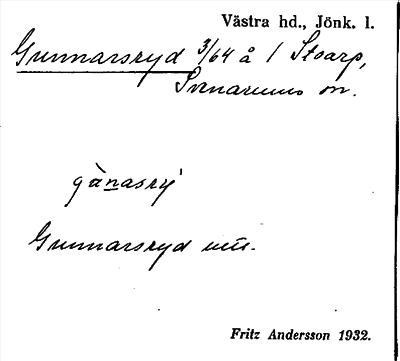 Västra hd., Jönk. l.
Gunnarsryd 3/64 å 1 Stoarp,
Svenarums sn.
gànasry
Gunnarsryd
Fritz Andersson 1932.